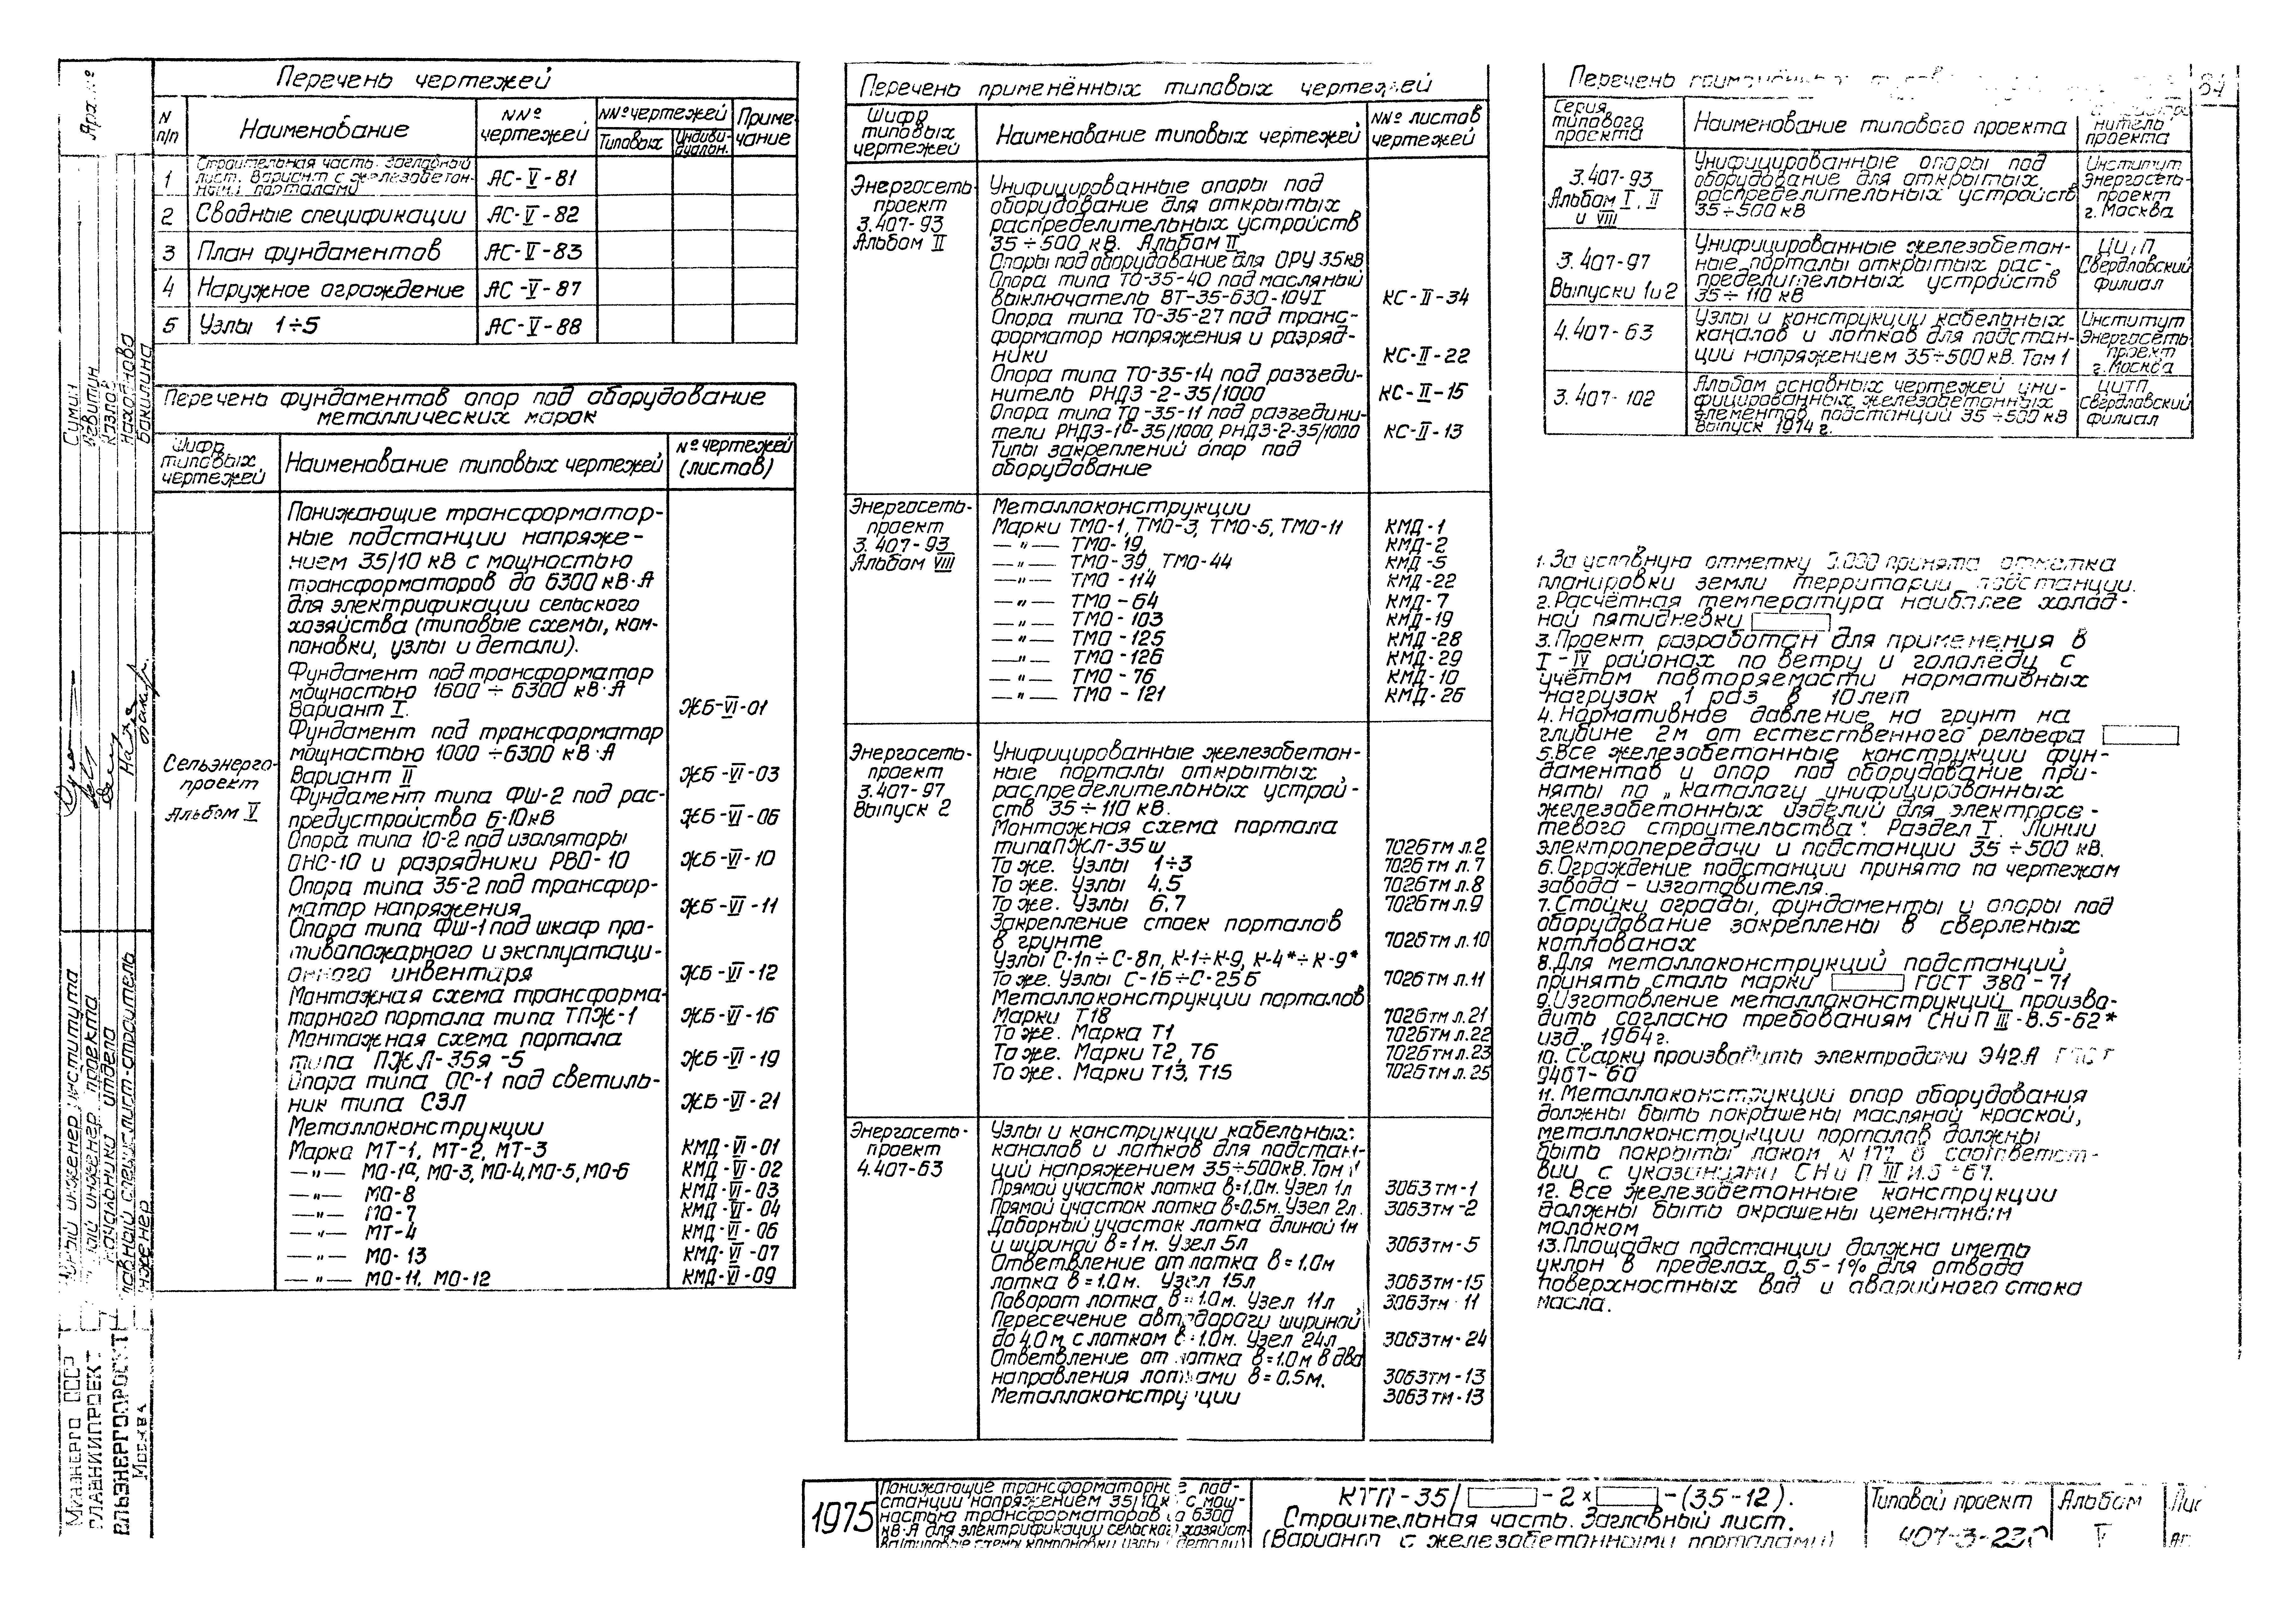 Перечень чертежей
N п/п
Наименование
NNº чертежей
NNº чертежей
Типовых
Индиви-
дуальн.
Приме-
чание
1 Строительная часть. Заглавный
лист. Вариант с железобетон-
ными порталами АС-V-81
2 Сводные спецификации АС-V-82
3 План фундаментов АС-V-83
4 Наружное ограждение АС-V-87
5 Узлы 1÷5 АС-V-88
Перечень фундаментов опор под оборудование
металлических марок
Шифр
типовых
чертежей
Наименование типовых чертежей
Nº чертежей
(листов)
Сельэнерго-
проект
Альбом V
Понижающие трансформатор-
ные подстанции напряже-
нием 35/10 кВ с мощностью
трансформаторов до 6300 кВ·А
для электрификации сельского
хозяйства (типовые схемы, ком-
поновки, узлы и детали).
Фундамент под трансформатор
мощностью 1600 ÷ 6300 кВ·А
Вариант I. ЖБ-VI-01
Фундамент под трансформатор
мощностью 1000 ÷6300 кВ·А
Вариант II ЖБ-VI-03
Фундамент типа ФШ-2 под рас-
предустройство 6-10кВ ЖБ-VI-06
Опора типа 10-2 под изоляторы
ОНС-10 и разрядники РВО-10 ЖБ-VI-10
Опора типа 35-2 под трансфор-
матор напряжения ЖБ-VI-11
Опора типа ФШ-1 под шкаф про-
тивопожарного и эксплуатаци-
онного инвентаря ЖБ-VI-12
Монтажная схема трансформа-
торного портала типа ТПЖ-1 ЖБ-VI-16
Монтажная схема портала
типа ПЖЛ-35я-5 ЖБ-VI-19
Опора типа ОС-1 под светиль-
ник типа СЗЛ ЖБ-VI-21
Металлоконструкции
Марка МТ-1, МТ-2, МТ-3 КМД-VI-01
—"— МО-1а, МО-3, МО-4, МО-5, МО-6 КМД-VI-02
—"— МО-8 КМД-VI-03
—"— МО-7 КМД-VI-04
—"— МТ-4 КМД-VI-06
—"— МО-13 КМД-VI-07
—"— МО-11, МО-12 КМД-VI-09
Перечень применённых типовых чертежей
Шифр
типовых
чертежей
Наименование типовых чертежей
NNº листов
чертежей
Энергосеть-
проект
3.407-93
Альбом II
Унифицированные опоры под
оборудование для открытых
распределительных устройств
35÷500 кВ. Альбом II
Опоры под оборудование для ОРУ 35кВ
Опора типа ТО-35-40 под масляный
выключатель ВТ-35-630-10У1 КС-II-34
Опора типа ТО-35-27 под транс-
форматор напряжения и разряд-
ники КС-II-22
Опора типа ТО-35-14 под разъеди-
нитель РНДЗ-2-35/1000 КС-II-15
Опора типа ТО-35-11 под разъедини-
тели РНДЗ-1б-35/1000, РНДЗ-2-35/1000 КС-II-13
Типы закреплений опор под
оборудование
Энергосеть-
проект
3.407-93
Альбом VIII
Металлоконструкции
Марки ТМО-1, ТМО-3, ТМО-5, ТМО-11 КМД-1
—"— ТМО-19 КМД-2
—"— ТМО-39, ТМО-44 КМД-5
—"— ТМО-114 КМД-22
—"— ТМО-64 КМД-7
—"— ТМО-103 КМД-19
—"— ТМО-125 КМД-28
—"— ТМО-126 КМД-29
—"— ТМО-76 КМД-10
—"— ТМО-121 КМД-26
Энергосеть-
проект
3.407-97
Выпуск 2
Унифицированные железобетон-
ные порталы открытых
распределительных устрой-
ств 35÷110 кВ.
Монтажная схема портала
типа ПЖЛ-35ш 7026тм л.2
То же. Узлы 1÷3 7026тм л.7
То же. Узлы 4,5 7026тм л.8
То же. Узлы 6,7 7026тм л.9
Закрепление стоек порталов
в грунте 7026тм л.10
Узлы С-1п÷С-8п, К-1÷К-9, К-4*÷К-9*
То же. Узлы С-1б÷С-25б 7026тм л.11
Металлоконструкции порталов
Марки Т18 7026тм л.21
То же. Марка Т1 7026тм л.22
То же. Марки Т2, Т6 7026тм л.23
То же. Марки Т13, Т15 7026тм л.25
Энергосеть-
проект
4.407-63
Узлы и конструкции кабельных
каналов и лотков для подстан-
ций напряжением 35÷500кВ. Том 1
Прямой участок лотка в=1,0м. Узел 1л 3063тм-1
Прямой участок лотка в=0,5м. Узел 2л. 3063тм-2
Доборный участок лотка длиной 1м
и шириной в=1м. Узел 5л 3063тм-5
Ответвление от лотка в=1.0м
лотка в=1.0м. Узел 15л 3063тм-15
Поворот лотка в=1.0м. Узел 11л 3063тм-11
Пересечение автодороги шириной
до 4.0м с лотком в=1.0м. Узел 24л 3063тм-24
Ответвление от лотка в=1.0м в два
направления лотками в=0.5м. 3063тм-13
Металлоконструкции 3063тм-13
Перечень применённых
84
Серия
типового
проекта
Наименование типового проекта
нитель
проекта
3.407-93
Альбом I, II
и VIII
Унифицированные опоры под
оборудование для открытых
распределительных устройств
35÷500 кВ
Институт
Энергосеть-
проект
г. Москва
3.407-97
Выпуски 1 и 2
Унифицированные железобетон-
ные порталы открытых рас-
пределительных устройств
35÷110 кВ
ЦИТП
Свердловский
филиал
4.407-63
Узлы и конструкции кабельных
каналов и лотков для подстан-
ций напряжением 35÷500 кВ. Том 1
Институт
Энергосеть-
проект
г. Москва
3.407-102
Альбом основных чертежей уни-
фицированных железобетонных
элементов подстанций 35÷500 кВ
Выпуск 1974 г.
ЦИТП
Свердловский
филиал
1. За условную отметку 0.000 принята отметка
планировки земли территории подстанции.
2. Расчётная температура наиболее холод-
ной пятидневки
3. Проект разработан для применения в
I-IV районах по ветру и гололёду с
учётом повторяемости нормативных
нагрузок 1 раз в 10 лет
4. Нормативное давление на грунт на
глубине 2м от естественного рельефа
5. Все железобетонные конструкции фун-
даментов и опор под оборудование при-
няты по „Каталогу унифицированных
железобетонных изделий для электросе-
тевого строительства". Раздел I. Линии
электропередачи и подстанции 35÷500 кВ.
6. Ограждение подстанции принято по чертежам
завода-изготовителя.
7. Стойки ограды, фундаменты и опоры под
оборудование закреплены в сверленых
котлованах
8. Для металлоконструкций подстанций
принять сталь марки ГОСТ 380-71
9. Изготовление металлоконструкций произво-
дить согласно требованиям СНиП III-В.5-62*
изд. 1964г.
10. Сварку производить электродами Э42А ГОСТ
9467-60
11. Металлоконструкции опор оборудования
должны быть покрашены масляной краской,
металлоконструкции порталов должны
быть покрыты лаком N 177 в соответст-
вии с указаниями СНиП III И.5-67.
12. Все железобетонные конструкции
должны быть окрашены цементным
молоком
13. Площадка подстанции должна иметь
уклон в пределах 0,5-1% для отвода
поверхностных вод и аварийного стока
масла.
Сумин
Левитин
Козлов
Находнова
Бакилина
инженер института
инженер проекта
начальник отдела
Главный специалист-строитель
Инженер
Минэнерго СССР
ГЛАВНИИПРОЕКТ
СЕЛЬЭНЕРГОПРОЕКТ
Москва
1975
Понижающие трансформаторные под-
станции напряжением 35/10кВ с мощ-
ностью трансформаторов до 6300
кВ·А для электрификации сельского хозяйст-
ва (типовые схемы компоновки узлы и детали)
КТП-35/ -2× -(35-12).
Строительная часть. Заглавный лист.
(Вариант с железобетонными порталами)
Типовой проект
407-3-230
Альбом
V